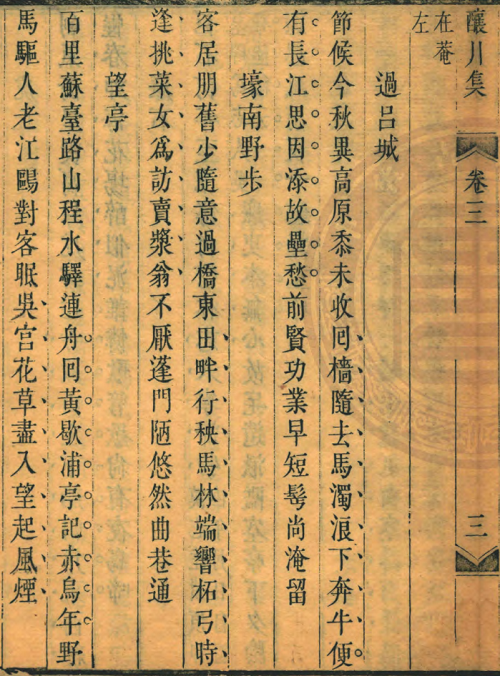 釀川集
卷三
三
在菴
左
過呂城
節候今秋異高原黍未收囘檣隨去馬濁浪下奔牛便
有長江思因添故壘愁前賢功業早短髩尚淹留
壕南野步
客居朋舊少隨意過橋東田畔行秧馬林端響柘弓時
逢挑菜女爲訪賣漿翁不厭蓬門陋悠然曲巷通
望亭
百里蘇臺路山程水驛連舟囘黃歇浦亭記赤烏年野
馬驅人老江鷗對客眠吳宮花草盡入望起風煙